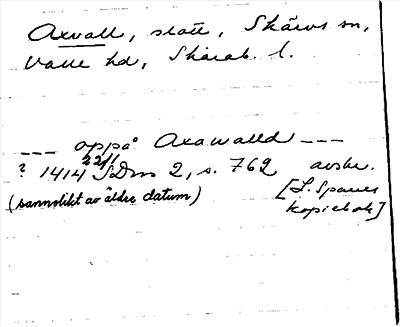 Axvall, slott, Skärvs sn,
Valle hd, Skarab. l.
--- oppa° Axawalld ---
22/1
? 1414 SDns 2, s. 762 avskr.
(sannolikt av äldre datum) [L. Sparres
kopiebok]